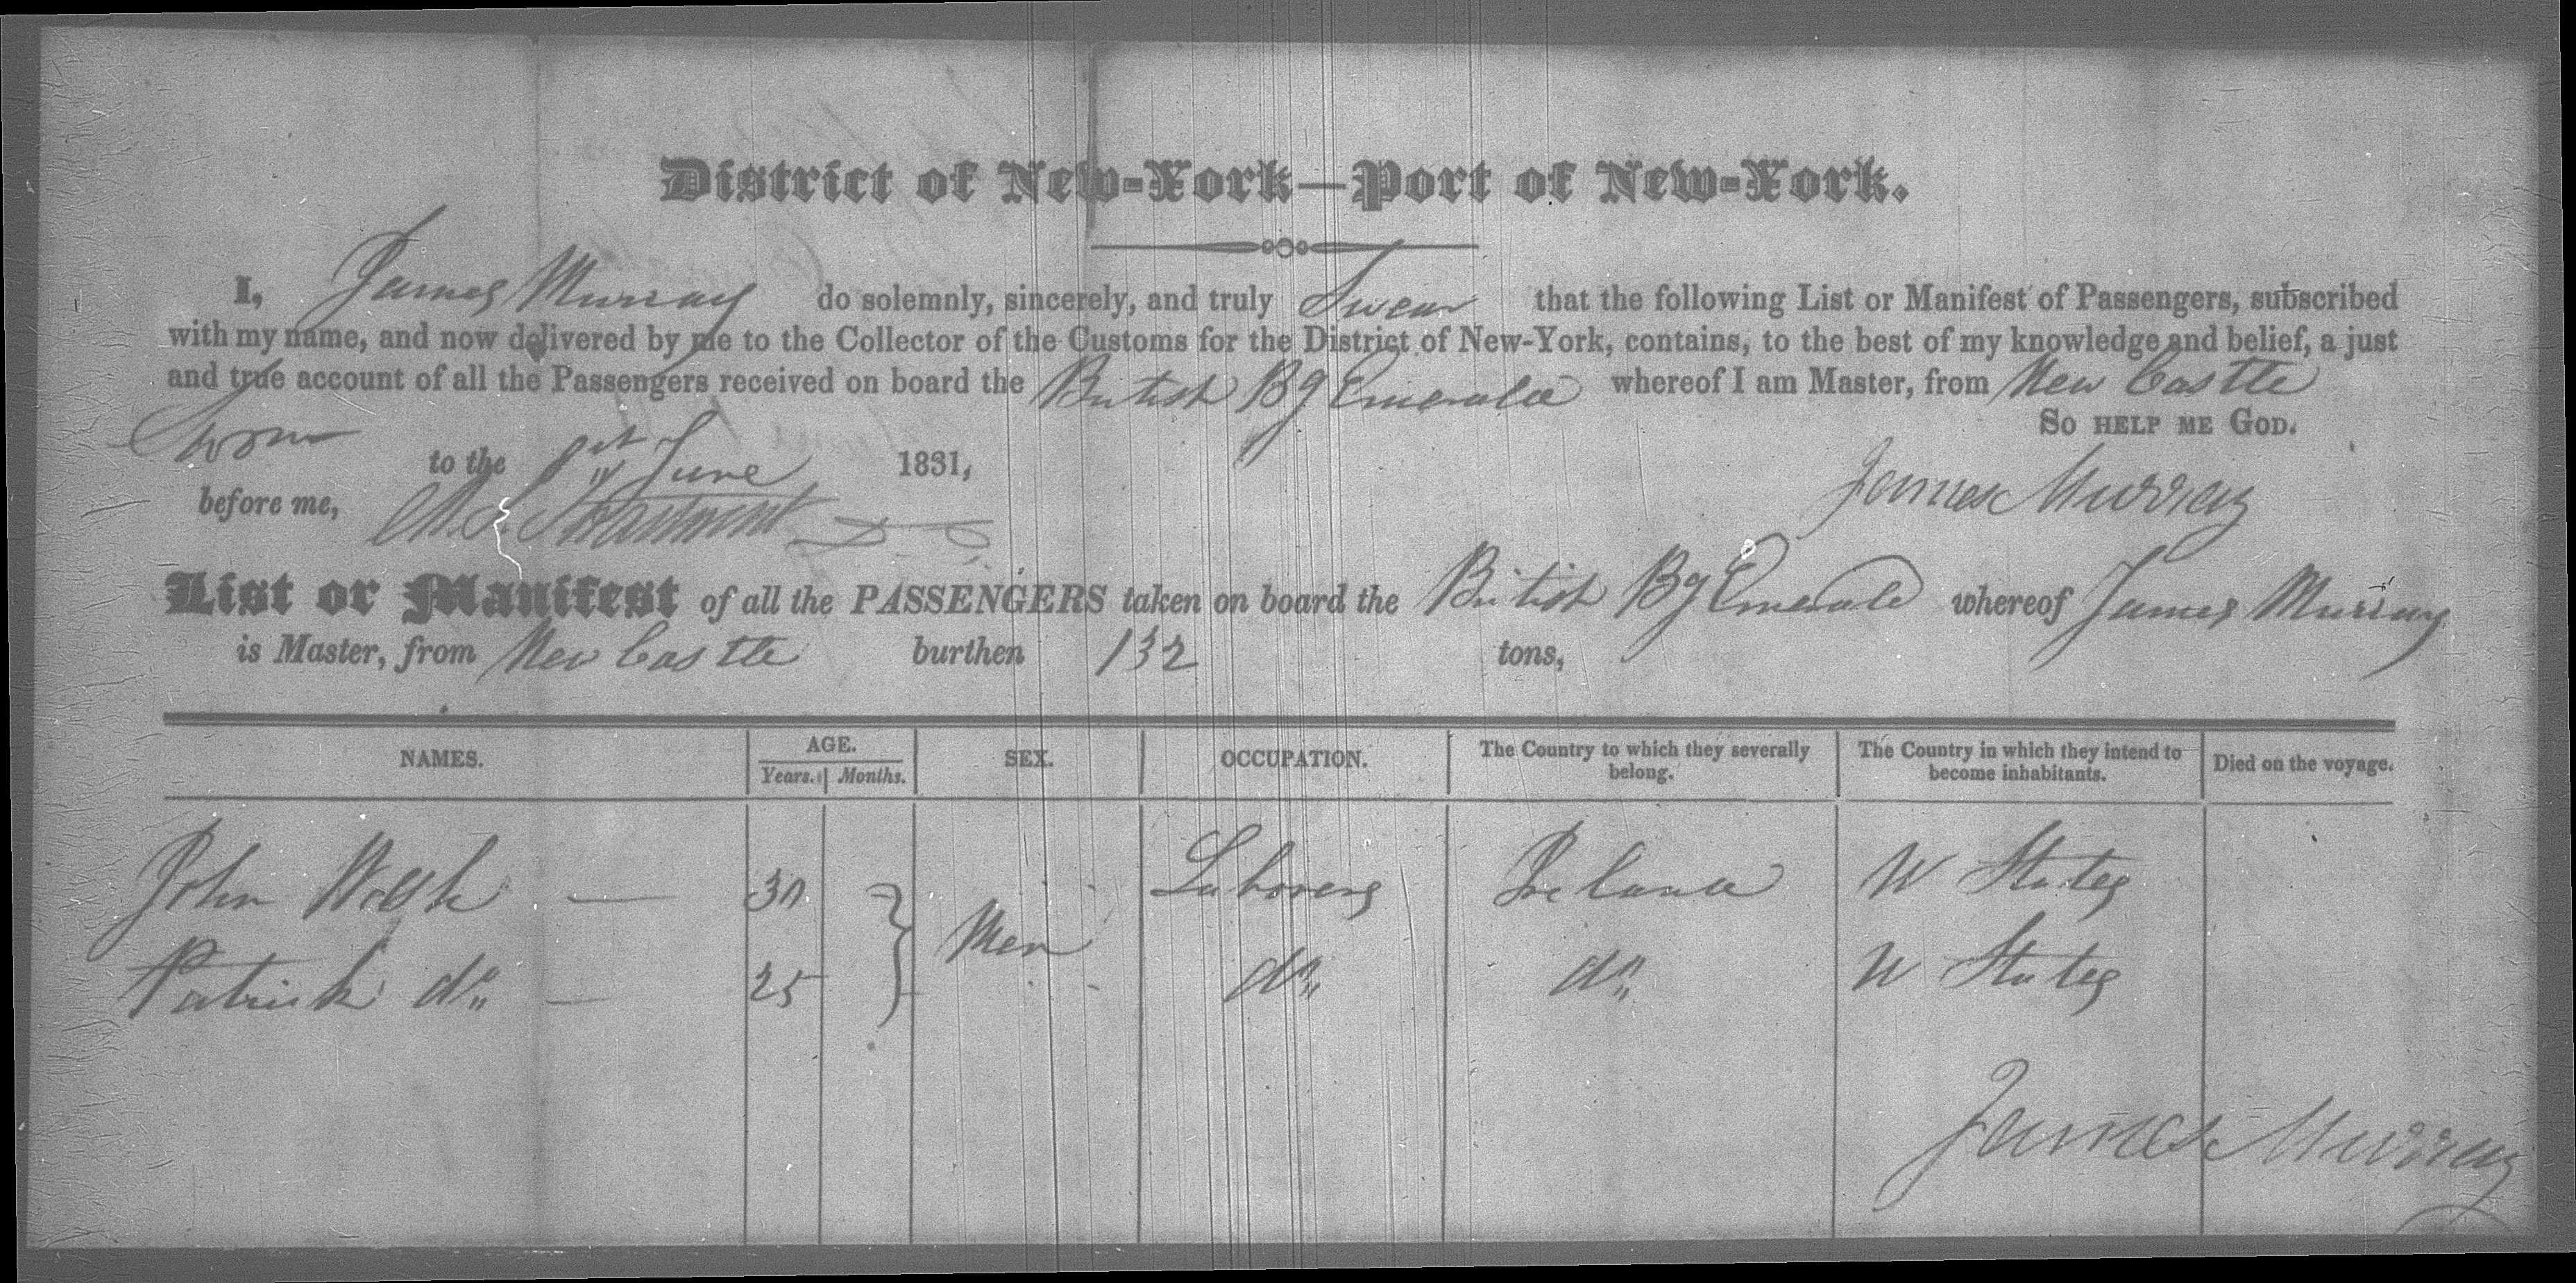 District of New-York—Port of New-York.
I, James Murray do solemnly, sincerely, and truly Swear that the following List or Manifest of Passengers, subscribed
with my name, and now delivered by me to the Collector of the Customs for the District of New-York, contains, to the best of my knowledge and belief, a just
and true account of all the Passengers received on board the British Bg Emerald whereof I am Master, from New Castle
So HELP ME GOD.
Sworn to the 1st June 1831,
James Murray
before me,
List or Manifest of all the PASSENGERS taken on board the British Bg Emerald whereof James Murray
is Master, from New Castle burthen 132 tons,
NAMES. AGE. Years. Months. SEX. OCCUPATION. The Country to which they severally belong. The Country in which they intend to become inhabitants. Died on the voyage.
John Welsh — 30 Men Laborers Ireland U States
Patrick do — 25 do do U States
James Murray